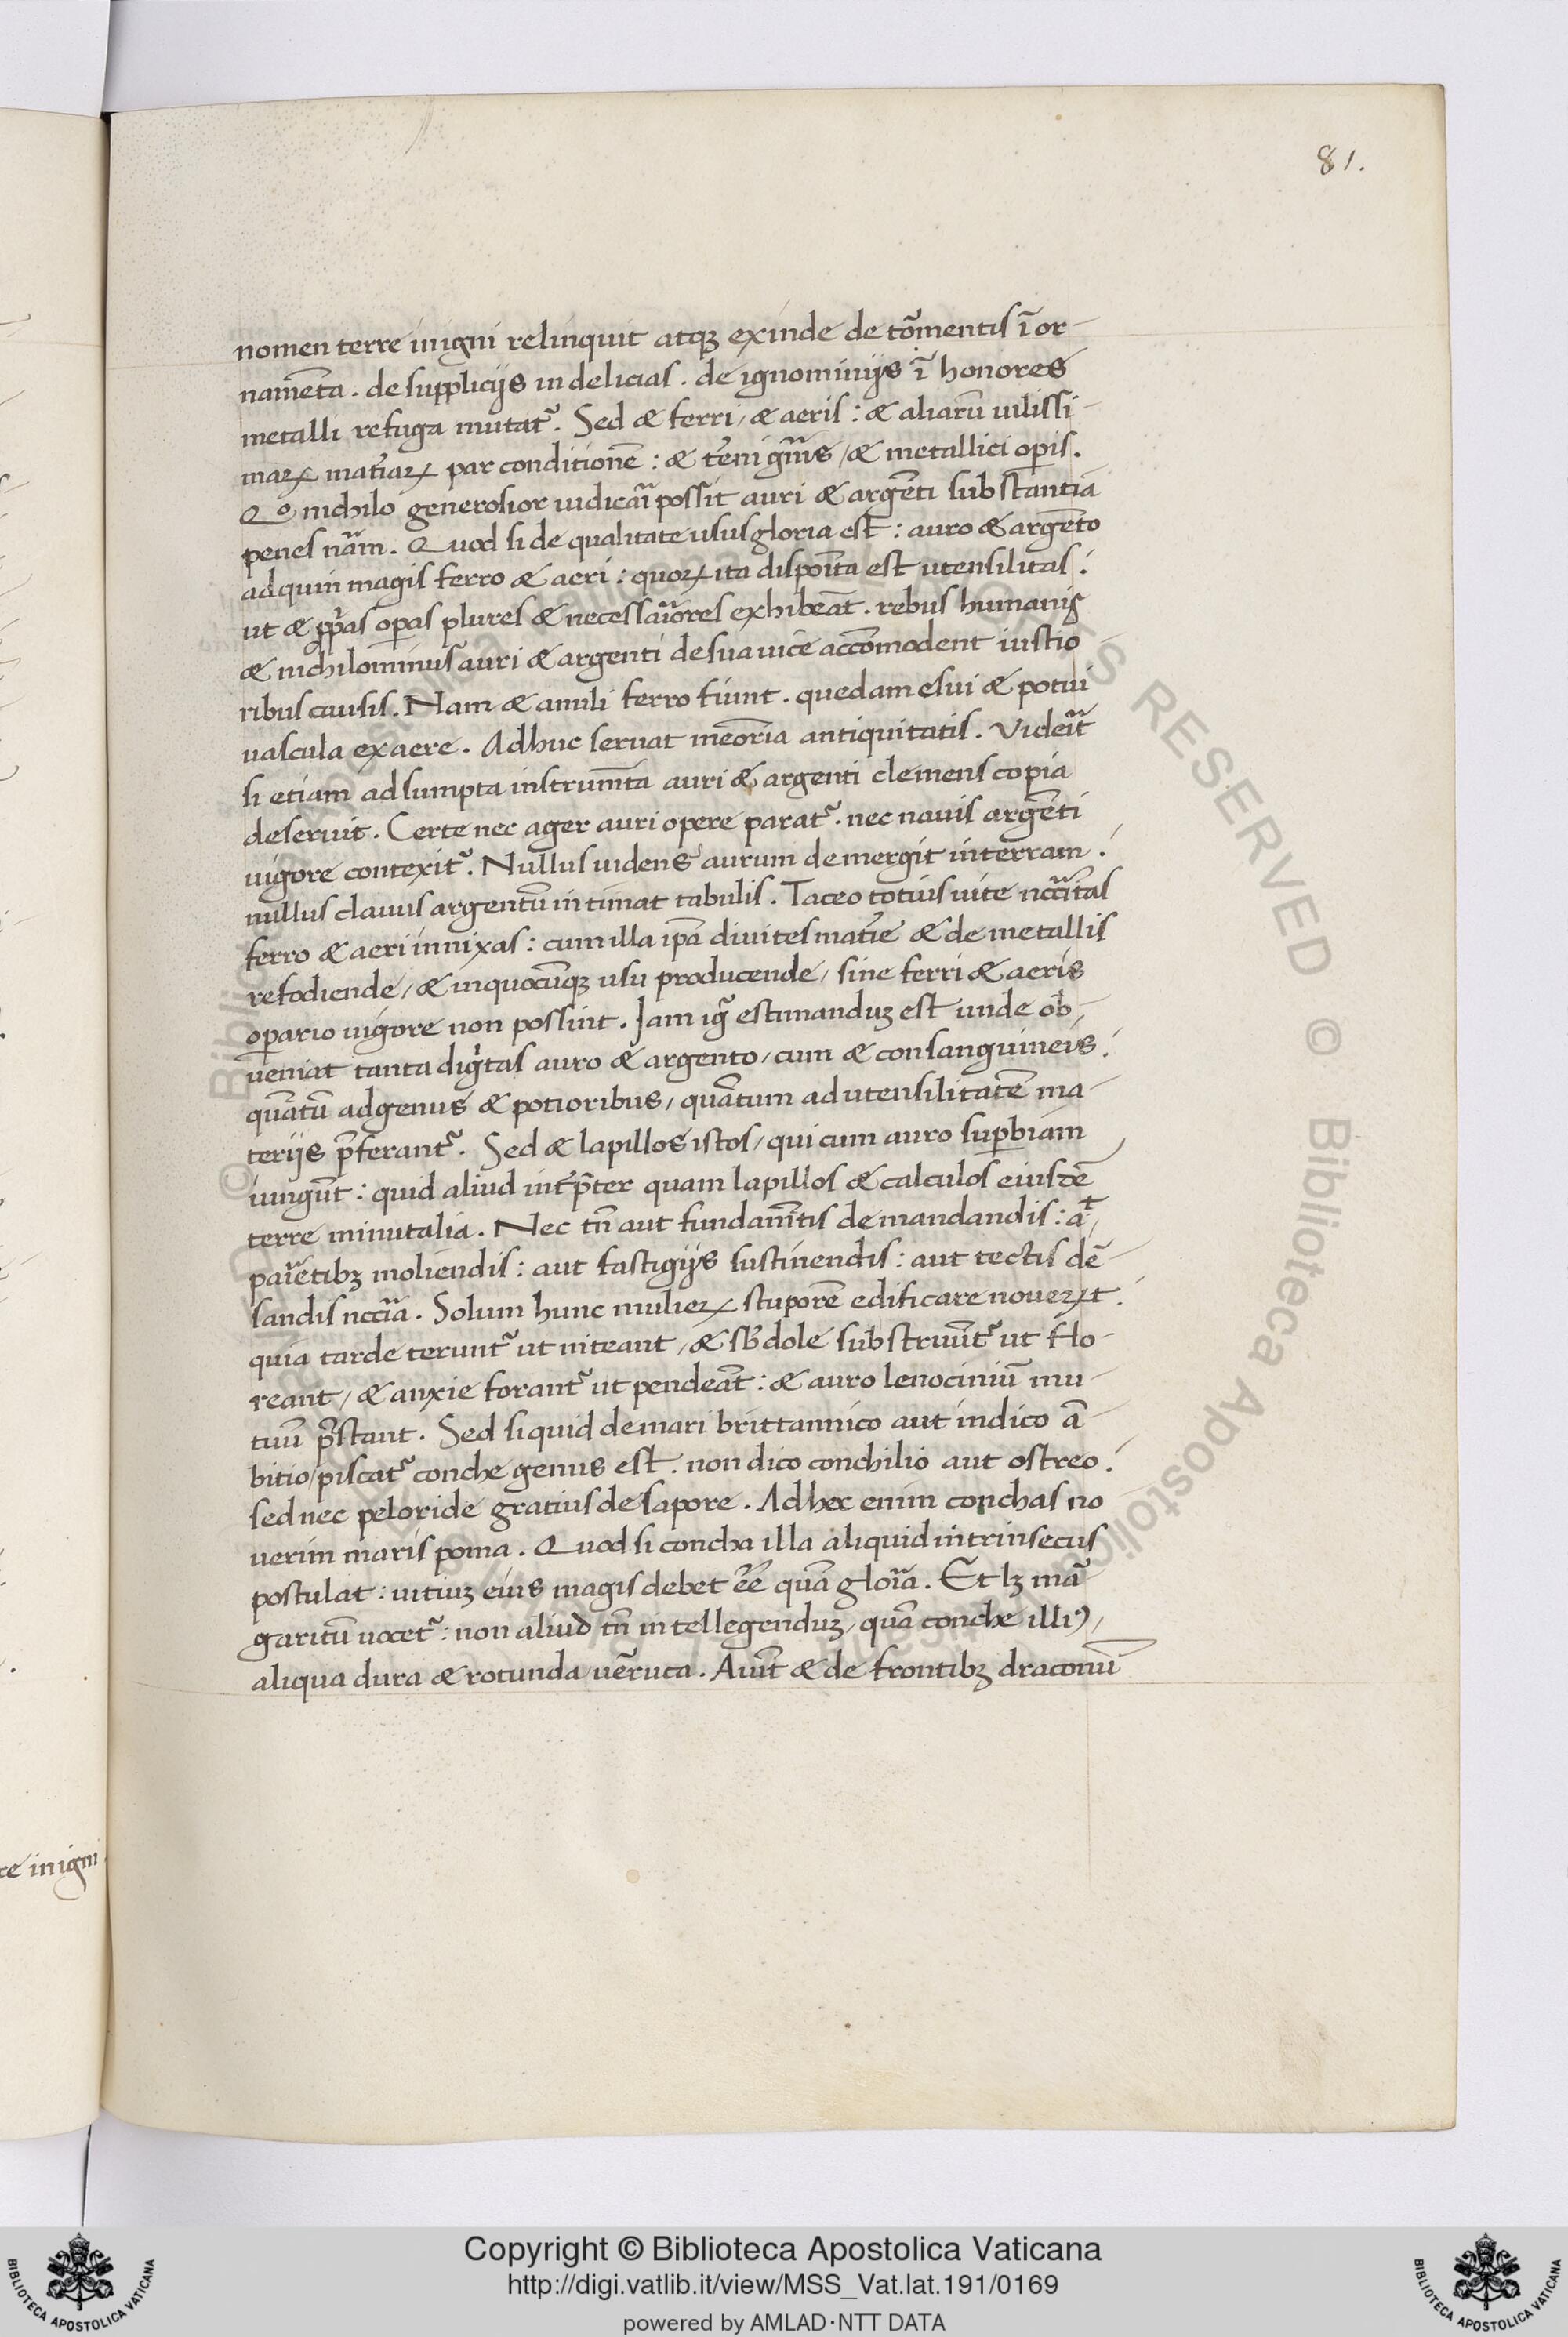 81.
nomen terre in igni relinquit atqꝫ exinde de to᷑mentis ī or-
nam̄eta . de suppliciis in delicias . de ignominiis ī honores
metalli refuga mutat᷑. Sed & ferri / & aeris : & aliarū uilissi-
maꝝ mat̄iaꝝ par conditionē : & t̄reni gn̄is / & metallici oꝑis.
Qͦ nichilo generosior iudicari possit auri & argēti substantia
penes nām. Quod si de qualitate usus gloria est : auro & argēto
adquin magis ferro & aeri : quoꝝ ita disposita est utensilitas :
ut & ꝓpas oꝑas plures & necessariores exhibeāt . rebus humanis
& nichilominus auri & argenti de sua uice accōmodent iustio
ribus causis. Nam & anuli ferro fiunt . quedam esui & potui
uascula ex aere. Adhuc seruat meōria antiquitatis. Viderit
si etiam adsumpta instrum̄ta auri & argenti clemens copia
deseruit. Certe nec ager auri opere parat᷑. nec nauis argēti
uigore contexit᷑. Nullus uidens aurum demergit in terram .
nullus clauus argentū intimat tabulis. Taceo totius uite nc̄citas
ferro & aeri innixas : cum illa ip̄a diuites mat̄ie & de metallis
refodiende / & in quocūqꝫ usu producende / sine ferri & aeris
oꝑario uigore non possint. Jam ig᷑ estimanduꝫ est unde ob-
ueniat tanta dig̃tas auro & argento / cum & consanguineis :
quātū ad genus & potioribus / quātum ad utensilitatē ma-
teriis p̄ferant᷑. Sed & lapillos istos / qui cum auro suꝑbiam
iungūt : quid aliud int̄p̄ter quam lapillos & calculos eiusdē
terre minutalia. Nec tn̄ aut fundam̄tis demandandis : at
parietibꝫ moliendis : aut fastigiis sustinendis : aut tectis dē-
sandis nc̄cia. Solum hunc mulieꝝ stuporē edificare noueꝝt .
quia tarde terunt᷑ ut niteant / & sb̄dole substruūt᷑ ut flo-
reant / & anxie forant᷑ ut pendeāt : & auro lenociniū mu-
tuū p̄stant. Sed si quid de mari brittannico aut indico ā-
bitio / piscat᷑ conche genus est . non dico conchilio aut ostreo .
sed nec peloride gratius de sapore. Ad hec enim conchas no
uerim maris poma. Quod si concha illa aliquid intrinsecus
postulat : uitiuꝫ eius magis debet eē quā gloria. Et lꝫ mar
garitū uocet᷑ : non aliud tn̄ intellegenduꝫ / quā conche illiꝰ /
aliqua dura & rotunda uerruca. Aiūt & de frontibꝫ draconū
re in igni
Copyright © Biblioteca Apostolica Vaticana
http://digi.vatlib.it/view/MSS_Vat.lat.191/0169
powered by AMLAD·NTT DATA